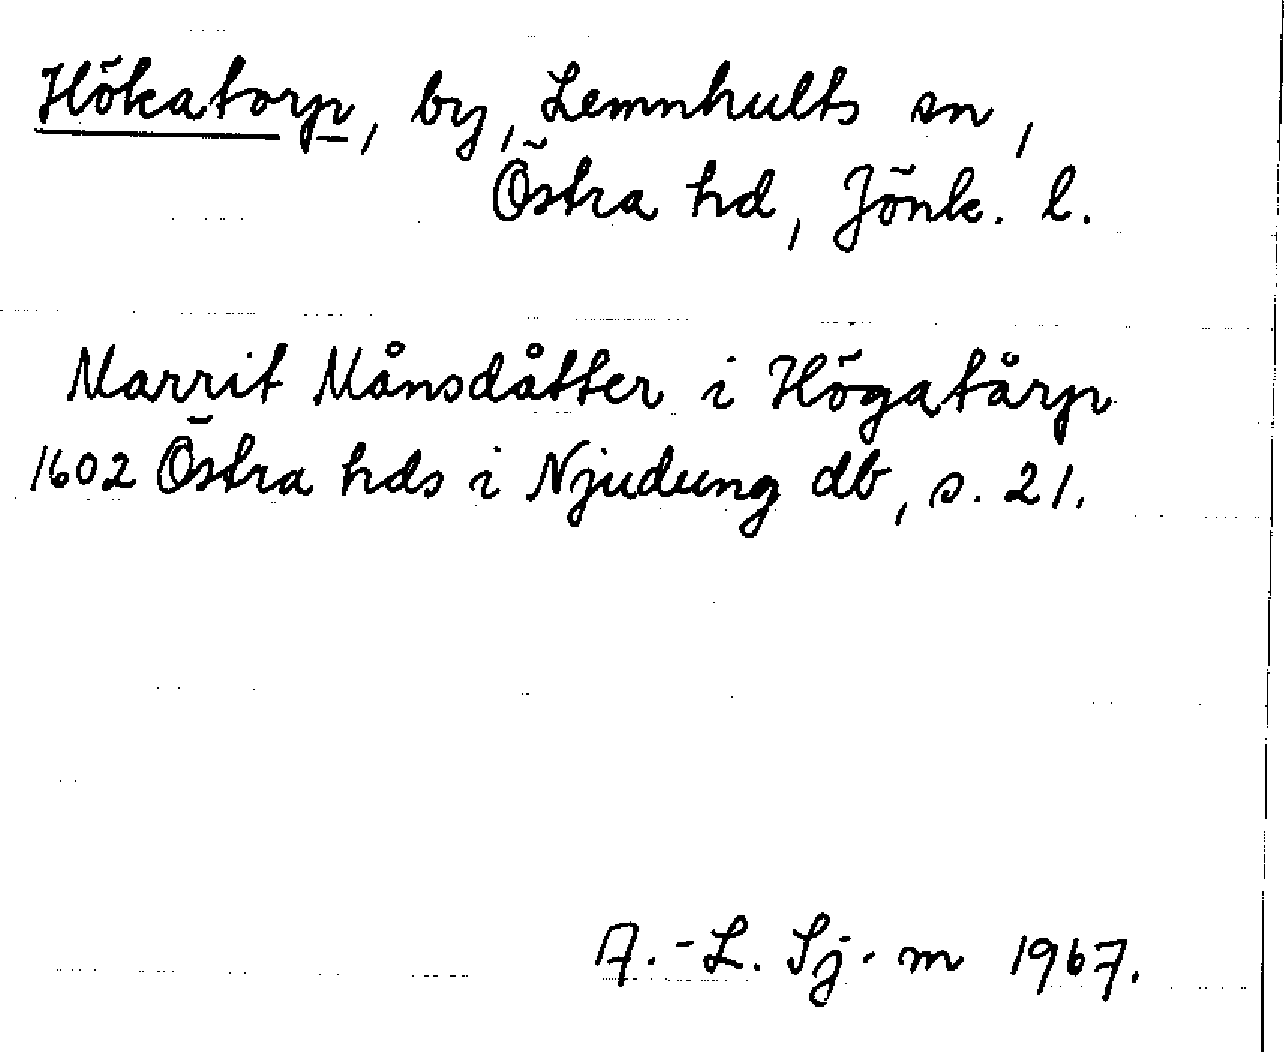 Hökatorp, by, Lemnhults sn,
Östra hd, Jönk. l.
Marrit Månsdåtter i Högatårp
1602 Östra hds i Njudung db, s. 21.
A.-L. Sj-m 1967.